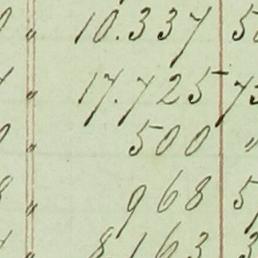 " 10.337 5
" 17.725 7
" 500 "
" 968 5
8.163 3